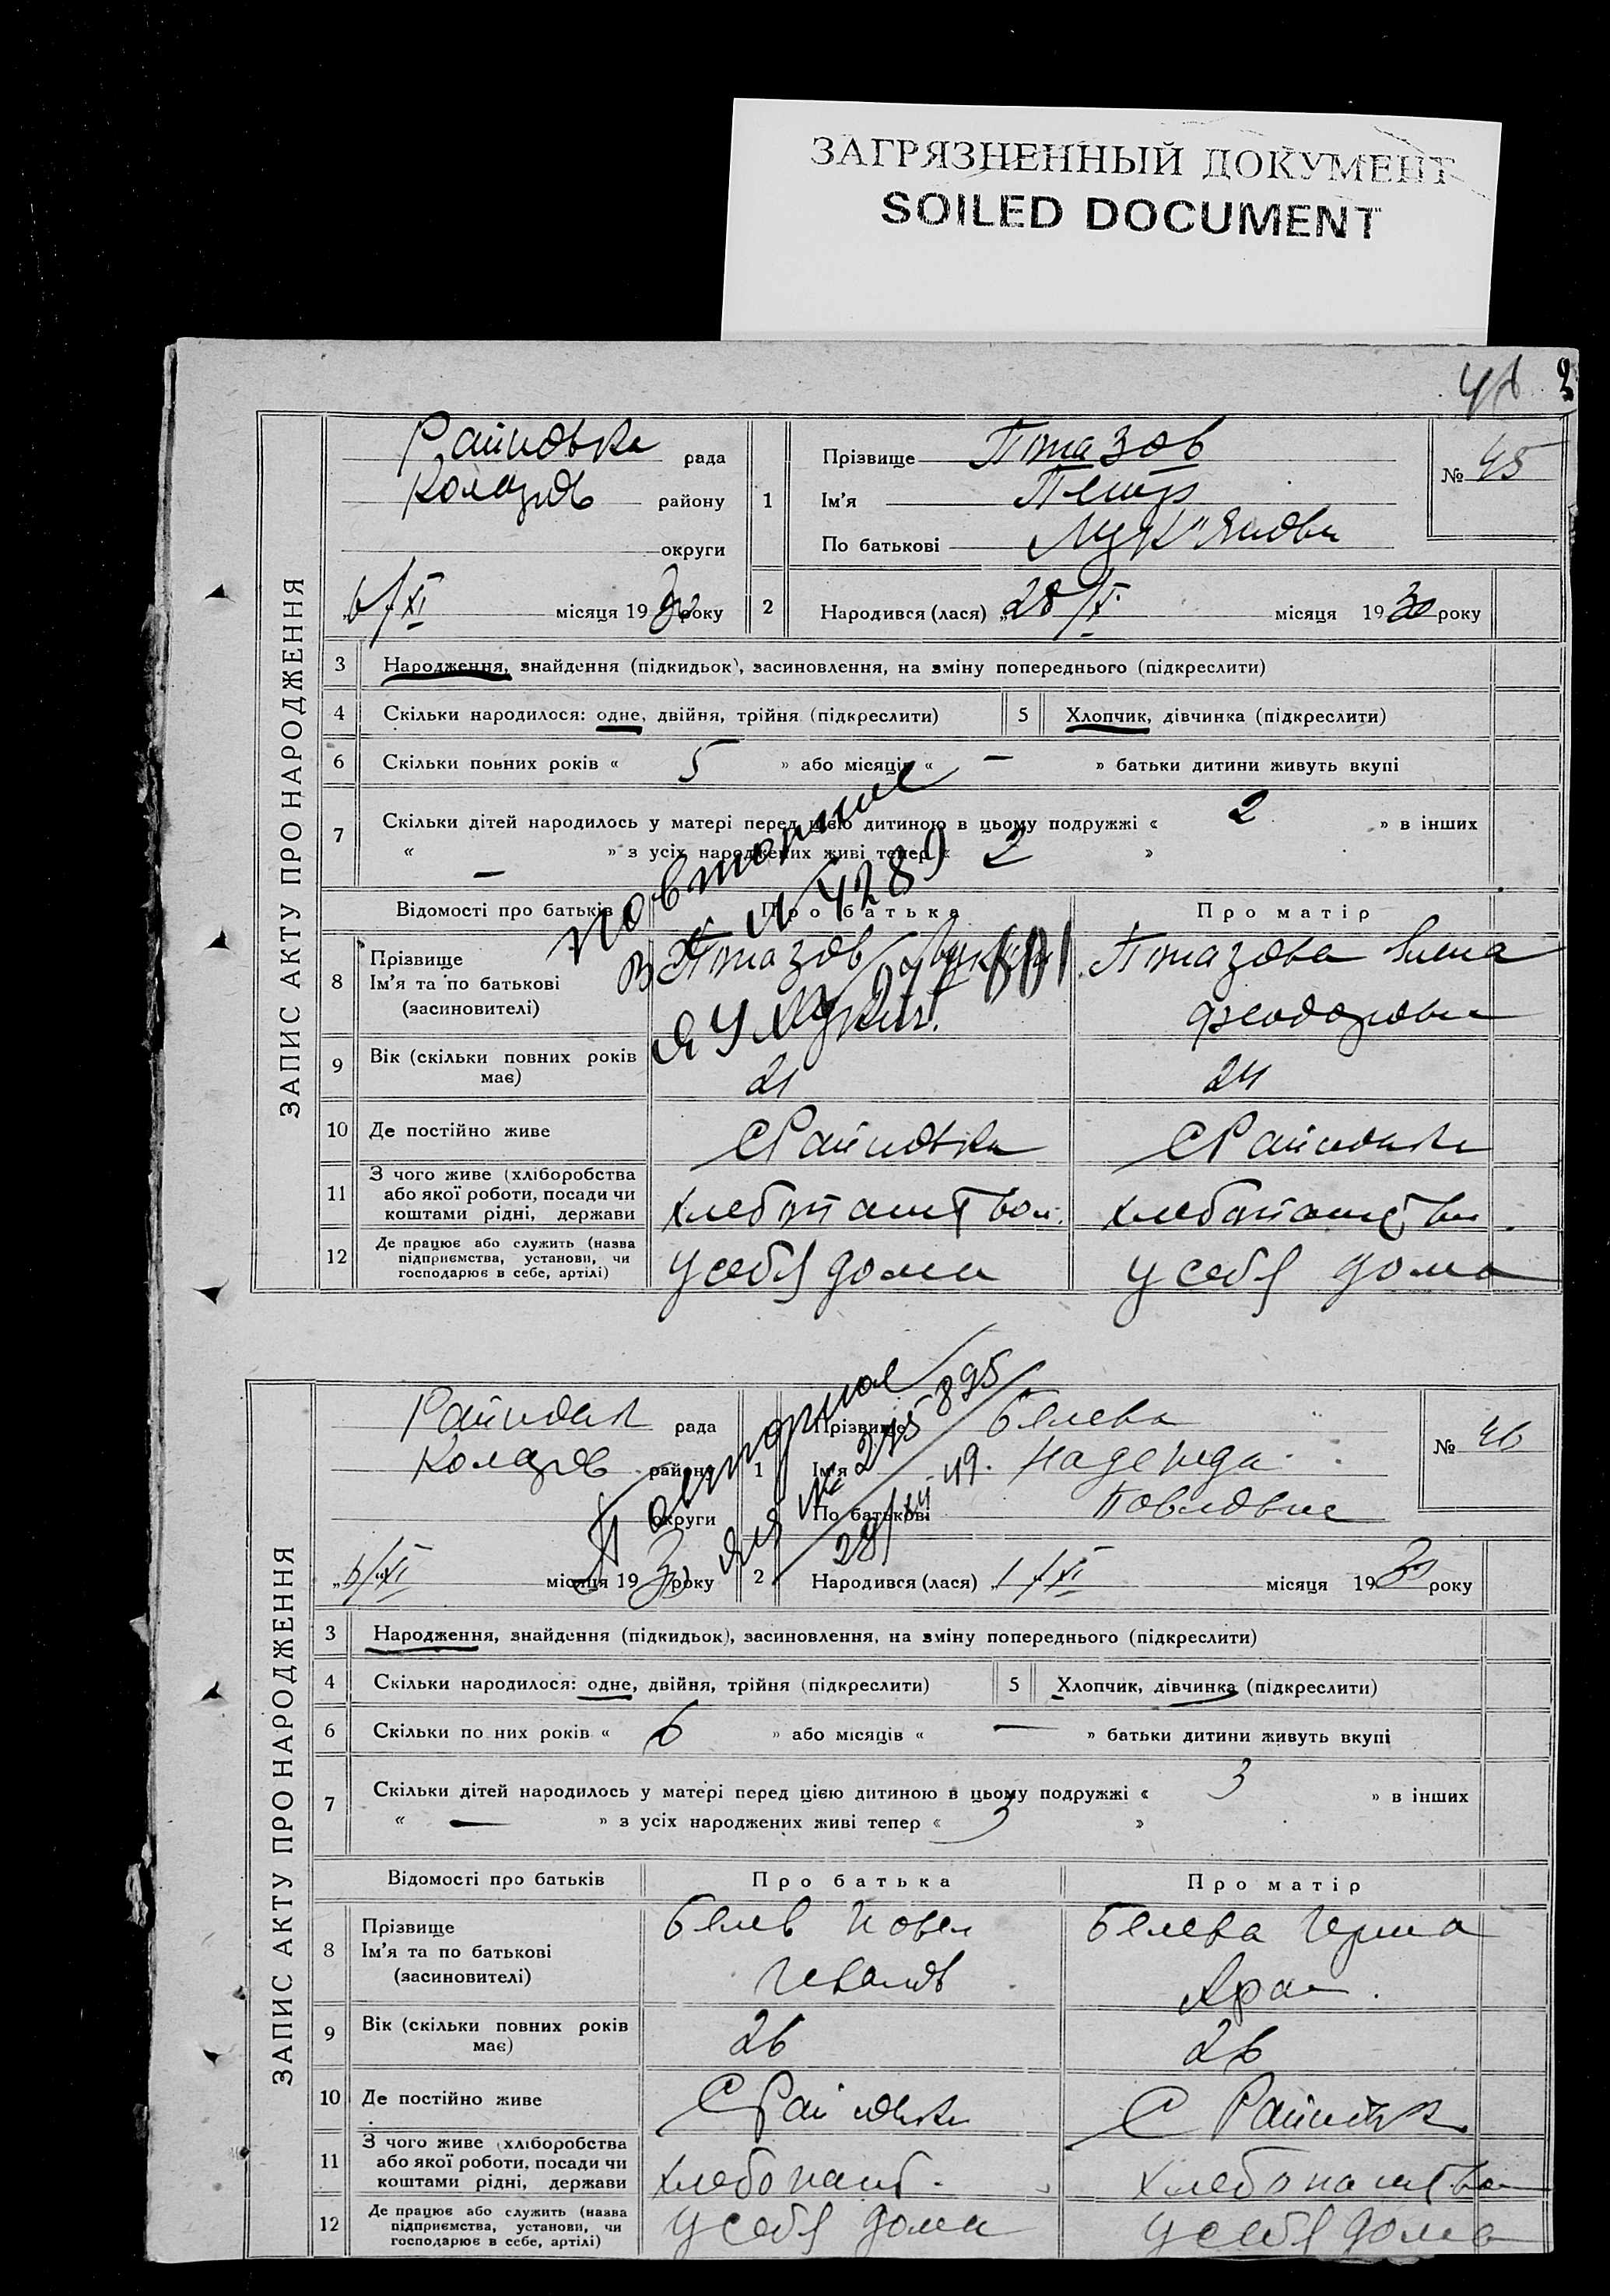 ЗАГРЯЗНЕННЫЙ ДОКУМЕНТ
SOILED DOCUMENT
ЗАПИС АКТУ ПРО НАРОДЖЕННЯ
Райновка рада
Коларов району
округи
6/XI місяця 1930 року
1
Прізвище Птазов
Ім'я Петр
По батькові Лук"янови
№ 45
2
Народився (лася) „28/X місяця 1930 року
3 Народження, знайдення (підкидьок), засиновлення, на зміну попереднього (підкреслити)
4 Скільки народилося: одне, двійня, трійня (підкреслити)
5 Хлопчик, дівчинка (підкреслити)
6 Скільки повних років « 5 » або місяців « — » батьки дитини живуть вкупі
7 Скільки дітей народилось у матері перед цією дитиною в цьому подружжі « 2 » в інших
« — » з усіх народжених живі тепер « 2 »
повторное
Відомості про батьків
Про батька
Про матір
8 Прізвище
Ім'я та по батькові
(засновителі)
Птазов
Птазова
Феодоровна
9 Вік (скільки повних років
має)
21
24
10 Де постійно живе
С Райновка
С Райновка
11 З чого живе (хліборобства
або якої роботи, посади чи
коштами рідні, держави
хлебопаштвом
хлебопаштвом
12 Де працює або служить (назва
підприємства, установи, чи
господарює в себе, артілі)
у себя дома
у себя дома
ЗАПИС АКТУ ПРО НАРОДЖЕННЯ
Райновка рада
Коларов району
округи
6/XI місяця 1930 року
1
Прізвище Белева
Ім'я Надежда
По батькові Повловна
№ 46
повторное
2
Народився (лася) 1/XI місяця 1930 року
3 Народження, знайдення (підкидьок), засиновлення, на зміну попереднього (підкреслити)
4 Скільки народилося: одне, двійня, трійня (підкреслити)
5 Хлопчик, дівчинка (підкреслити)
6 Скільки по них років « 6 » або місяців « — » батьки дитини живуть вкупі
7 Скільки дітей народилось у матері перед цією дитиною в цьому подружжі « 3 » в інших
« — » з усіх народжених живі тепер « 3 »
Відомості про батьків
Про батька
Про матір
8 Прізвище
Ім'я та по батькові
(засиновителі)
Белев Повел
Иванов
Белева
9 Вік (скільки повних років
має)
26
26
10 Де постійно живе
С Райновка
С Райновка
11 З чого живе (хліборобства
або якої роботи, посади чи
коштами рідні, держави
хлебопашт.
хлебопаштвом
12 Де працює або служить (назва
підприємства, установи, чи
господарює в себе, артілі)
у себя дома
у себя дома